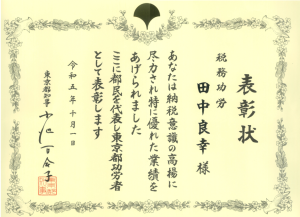 表彰状
税務功労
田中良幸様
あなたは納税意識の高揚に
尽力され特に優れた業績を
あげられました
ここに都民を代表し東京都功労者
として表彰します
令和五年十月一日
東京都知事 小池百合子